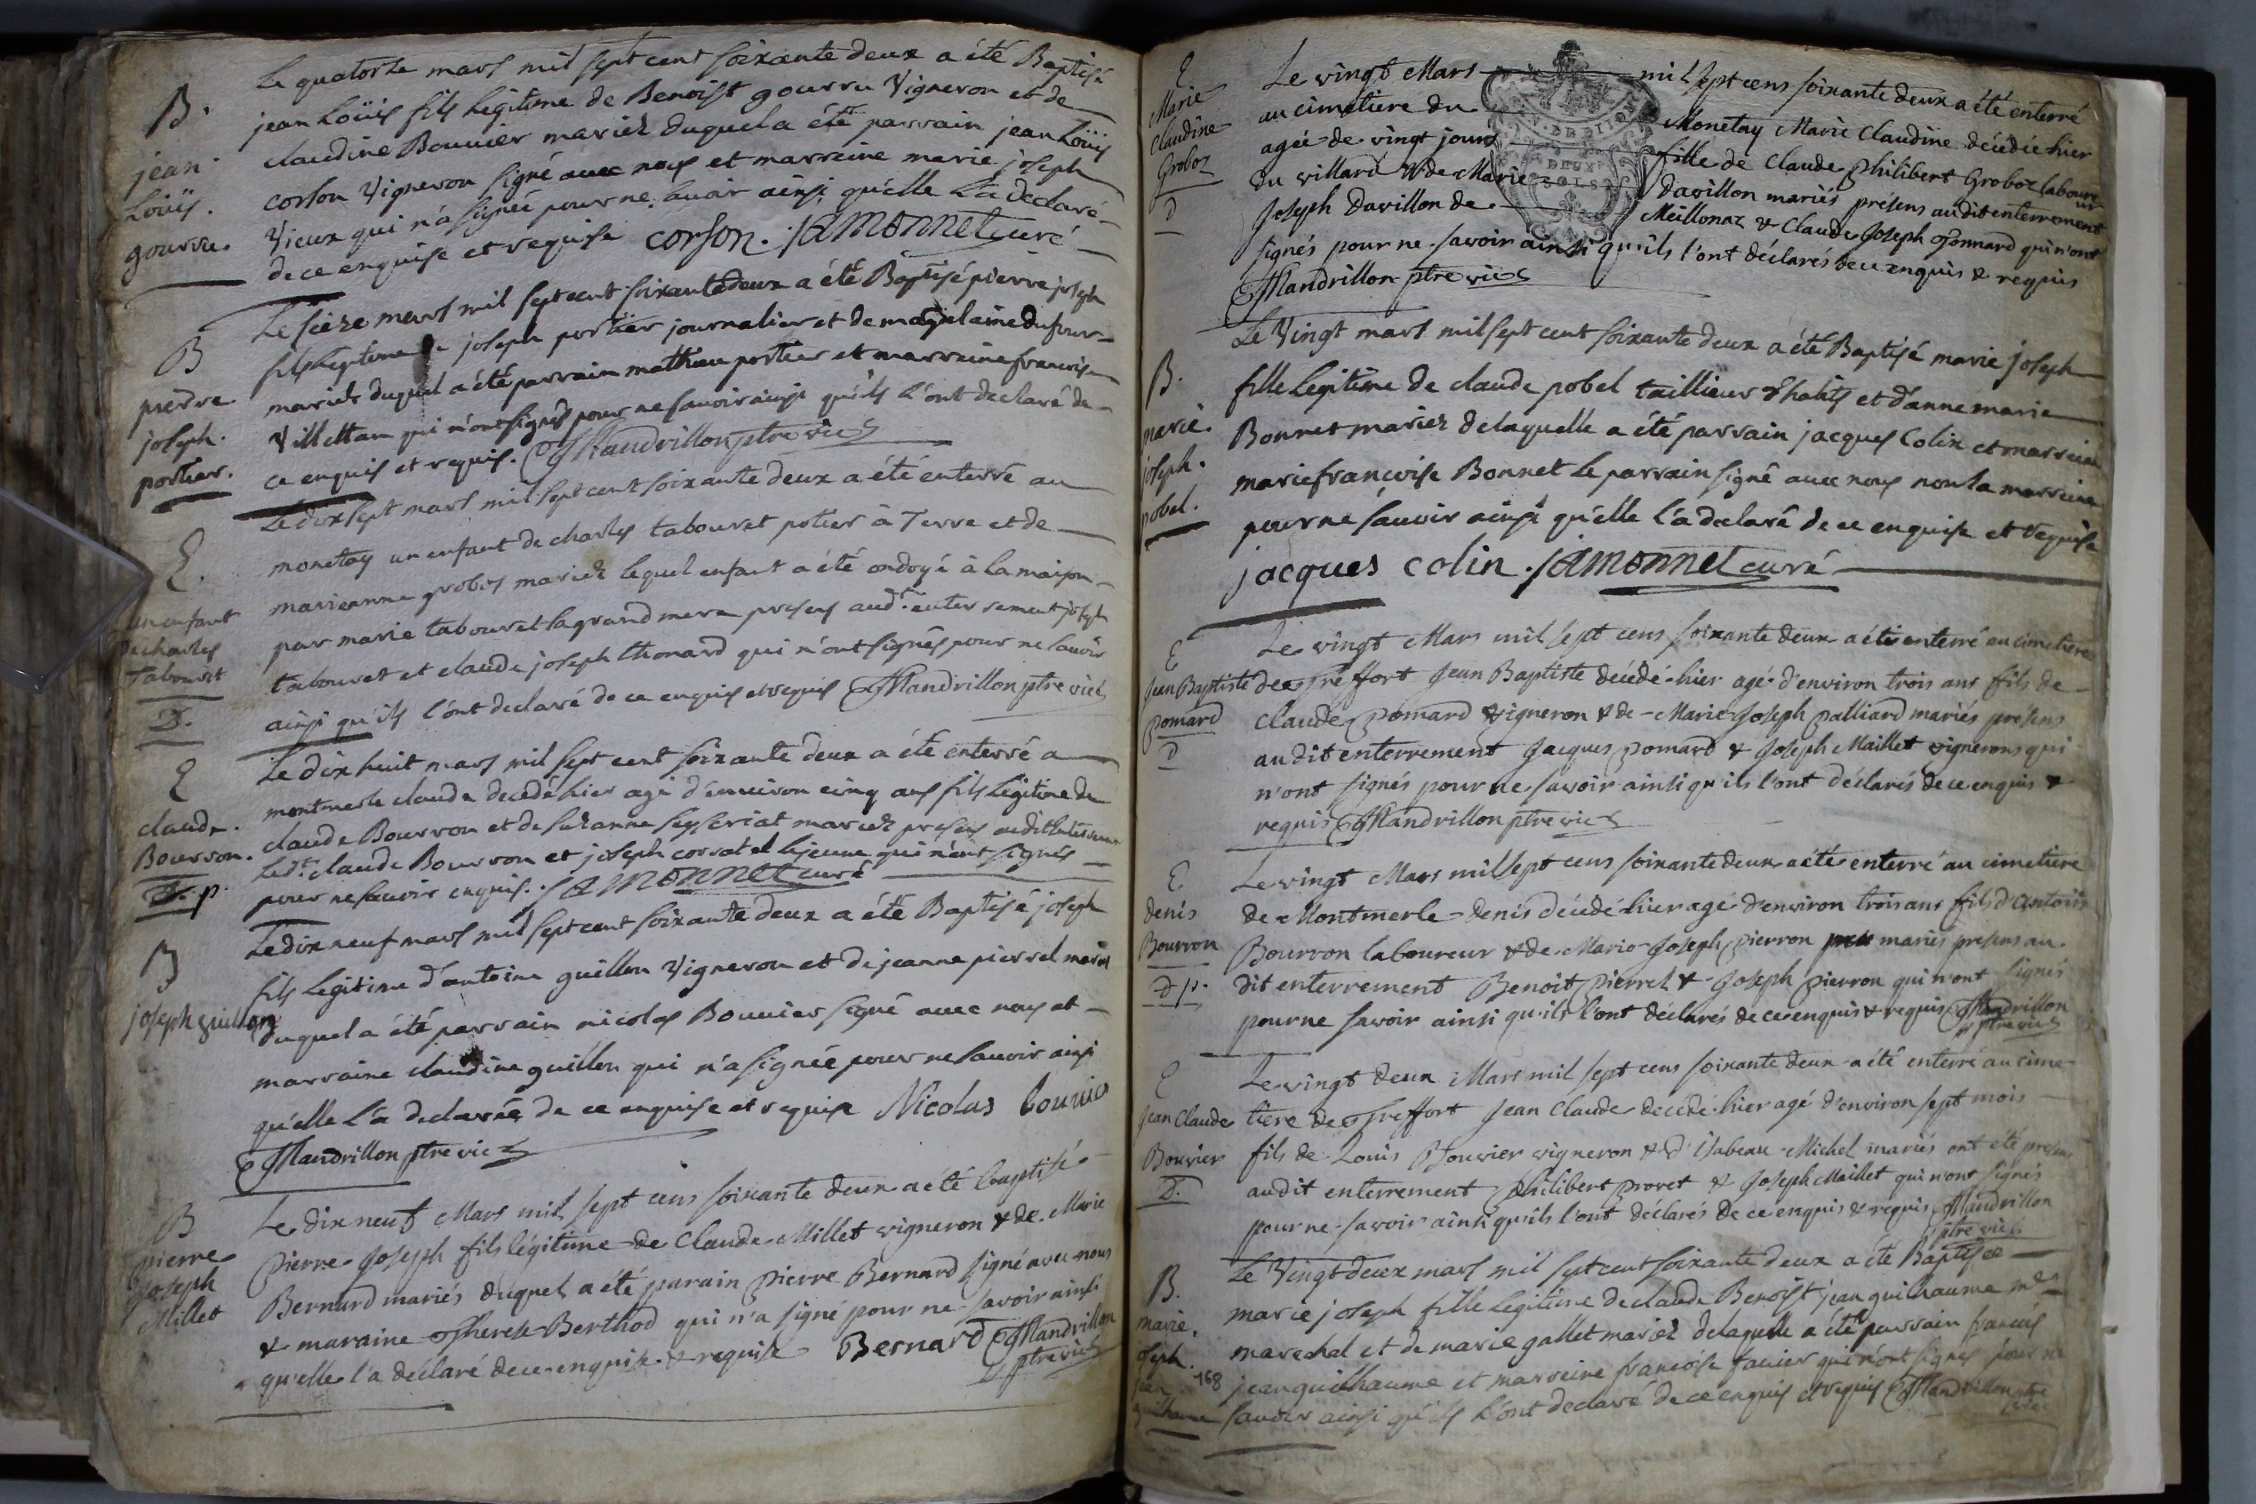 B.
jean
Loüis.
gourru.
Le quatorze mars mil sept cent soixante deux a été Baptisé
jean Loüis fils legitime de Benoist gourru Vigneron et de
claudine Bouvier mariez duquel a été parrain jean Loüis
corson Vigneron signé avec nous et marraine marie joseph
Vieux qui n'a signée pour ne savoir ainsi qu'elle l'a declaré
de ce enquise et requise corson. jamonnet curé
B
pierre
joseph.
portier.
Le seize mars mil sept cent soixante deux a été Baptisé pierre joseph
fils legitime joseph portier journalier et de magdelaine dufour
mariés duquel a été parrain mathieu portier et marraine francoise
Villettan qui n'ont signés pour ne savoir ainsi qu'ils l'ont declaré de
ce enquis et requis. Mandrillon ptre vic
E.
un enfant
de charles
Tabouret
D.
Le dix sept mars mil sept cent soixante deux a été enterré au
monetay un enfant de charles tabouret potier à Terre et de
marianne grobos mariez lequel enfant a été ondoyé à la maison
par marie tabouret sa grand mere presens aud.t enterrement joseph
tabouret et claude joseph thonard qui n'ont signés pour ne savoir
ainsi qu'ils l'ont declaré de ce enquis et requis Mandrillon ptre vic
E
claude.
Bourron.
D. p.
Le dix huit mars mil sept cent soixante deux a été enterré a
montmerle claude decedé hier agé d'environ cinq ans fils legitime de
claude Bourron et de suzanne seyseriat mariez presens audit enterrement
led.t claude Bourron et joseph corsatel lejeune qui n'ont signés
pour ne savoir enquis. jamonnet curé
B
joseph guillon
Le dix neuf mars mil sept cent soixante deux a été Baptisé joseph
fils legitime d'antoine guillon Vigneron et de jeanne pierrel mariés
duquel a été parrain nicolas Bouvier signé avec nous et
marraine claudine guillon qui n'a signée pour ne savoir ainsi
qu'elle l'a declarée de ce enquise et requise Nicolas bouvier
Mandrillon ptre vic
B
pierre
Joseph
Millet
Le dix neuf Mars mil sept cens soixante deux a été baptisé
Pierre Joseph fils légitime de Claude Millet vigneron & de Marie
Bernard mariés duquel a été parain Pierre Bernard signé avec nous
& maraine Therese Berthod qui n'a signé pour ne savoir ainsi
qu'elle l'a déclaré de ce enquise & requise Bernard Mandrillon
ptre vic
E
Marie
Claudine
Groboz
D
Le vingt Mars mil sept cens soixante deux a été enterré
au cimetiere du Monetay Marie Claudine décédée hier
agée de vingt jours fille de Claude Philibert Groboz laboureur
du villard & de Marie Davillon mariés présens audit enterrement
Joseph Davillon de Meillonaz & Claude Joseph Thonnard qui n'ont
signés pour ne savoir ainsi qu'ils l'ont déclarés de ce enquis & requis
Mandrillon ptre vic
B.
marie.
joseph.
pobel.
Le Vingt mars mil sept cent soixante deux a été Baptisé marie joseph
fille legitime de claude pobel taillieur d'habits et d'anne marie
Bonnet mariez de laquelle a été parrain jacques Colin et marraine
marie francoise Bonnet le parrain signé avec nous non la marraine
pour ne savoir ainsi qu'elle l'a declaré de ce enquise et requise
jacques colin. jamonnet curé
E
Jean Baptiste
Pomard
D
Le vingt Mars mil sept cens soixante deux a été enterré au cimetiere
de Treffort Jean Baptiste décédé hier agé d'environ trois ans fils de
Claude Pomard vigneron & de Marie Joseph Palliard mariés présens
audit enterrement Jacques Pomard & Joseph Maillet vignerons qui
n'ont signés pour ne savoir ainsi qu'ils l'ont déclarés de ce enquis &
requis Mandrillon ptre vic
E
denis
Bourron
D p.
Le vingt Mars mil sept cens soixante deux a été enterré au cimetiere
de Montmerle denis décédé hier agé d'environ trois ans fils d'Antoine
Bourron laboureur & de Marie Joseph Pierron mariés présens au
dit enterrement Benoit Pierrel & Joseph Pierron qui n'ont signés
pour ne savoir ainsi qu'ils l'ont déclarés de ce enquis & requis Mandrillon
ptre vic
E
Jean Claude
Bouvier
D.
Le vingt deux Mars mil sept cens soixante deux a été enterré au cime
tiere de Treffort Jean Claude decédé hier agé d'environ sept mois
fils de Louis Bouvier vigneron & d'Isabeau Michel mariés ont été présens
audit enterrement Philibert Provet & Joseph Maillet qui n'ont signés
pour ne savoir ainsi qu'ils l'ont déclarés de ce enquis & requis Mandrillon
ptre vic
B.
marie.
joseph.
jean
guilhaume
168
Le Vingt deux mars mil sept cent soixante deux a été Baptisée
marie joseph fille legitime de claude Benoist jean guilhaume me
marechal et de marie gallet mariez de laquelle a été parrain francois
jean guilhaume et marraine francoise favier qui n'ont signés pour ne
savoir ainsi qu'ils l'ont declaré de ce enquis et requis Mandrillon ptre
vic